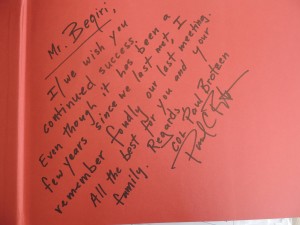 Mr. Beqiri;
I/we wish you
continued success.
Even though it has been a
few years since we last met, I
remember fondly our last meeting.
All the best for you and your
family. Regards,
COL Paul Brotzen